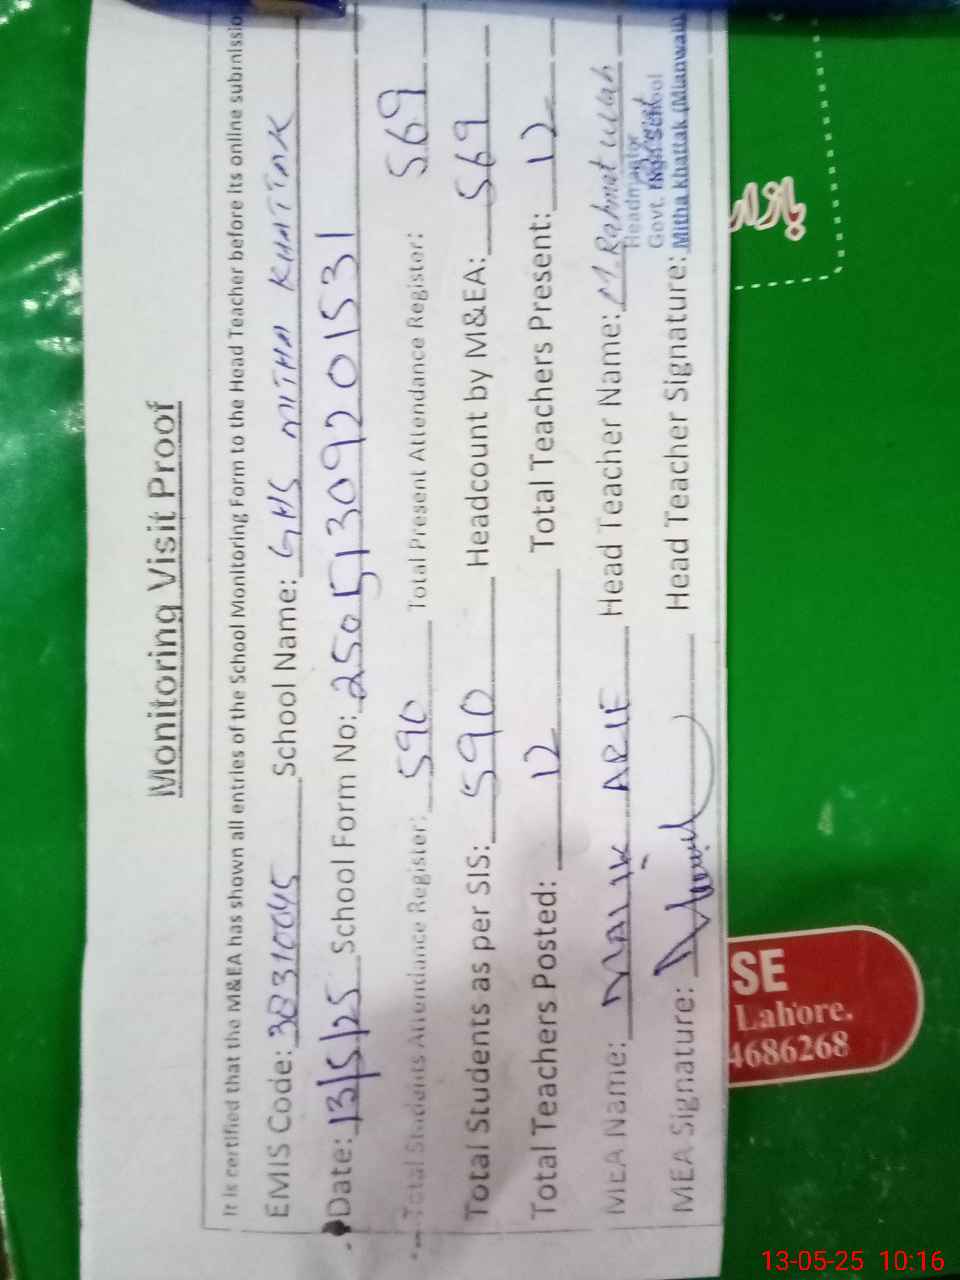 Monitoring Visit Proof
It is certified that the M&EA has shown all entries of the School Monitoring Form to the Head Teacher before its online submissio
EMIS Code: 38310045 School Name: GHS MITHA KHATTAK
Date: 13/5/25 School Form No: 25051309201531
Total Students Attendance Register: 590 Total Present Attendance Register: 569
Total Students as per SIS: 590 Headcount by M&EA: 569
Total Teachers Posted: 12 Total Teachers Present: 12
MEA Name: MALIK ARIF Head Teacher Name: M. Rahmat ullah
Headmaster
Govt. High School
MEA Signature: Head Teacher Signature: Mitha Khattak (Mianwali)
بازار
SE
Lahore.
4686268
13-05-25 10:16